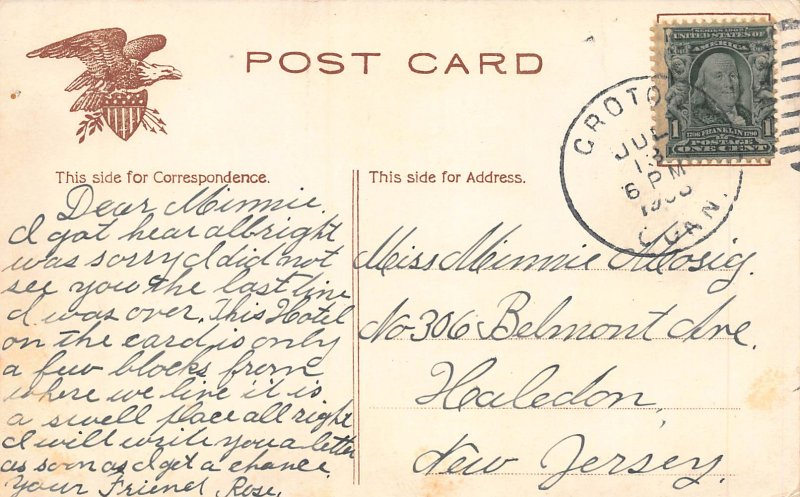 POST CARD
SERIES 1902
UNITED STATES OF
AMERICA
1706 FRANKLIN 1790
1 1
POSTAGE
ONE CENT
CROTO
JUL
13
6 PM
CONN.
This side for Correspondence.
Dear Minnie.
I got hear allright
was sorry I did not
see you the last time
I was over. This Hotel
on the card is only
a few blocks from
where we live it is
a swell place all right
I will write you a letter
as soon as I get a chance
Your Friend, Rose.
This side for Address.
Miss Minnie Mosig.
No 306 Belmont Ave.
Haledon,
New Jersey.